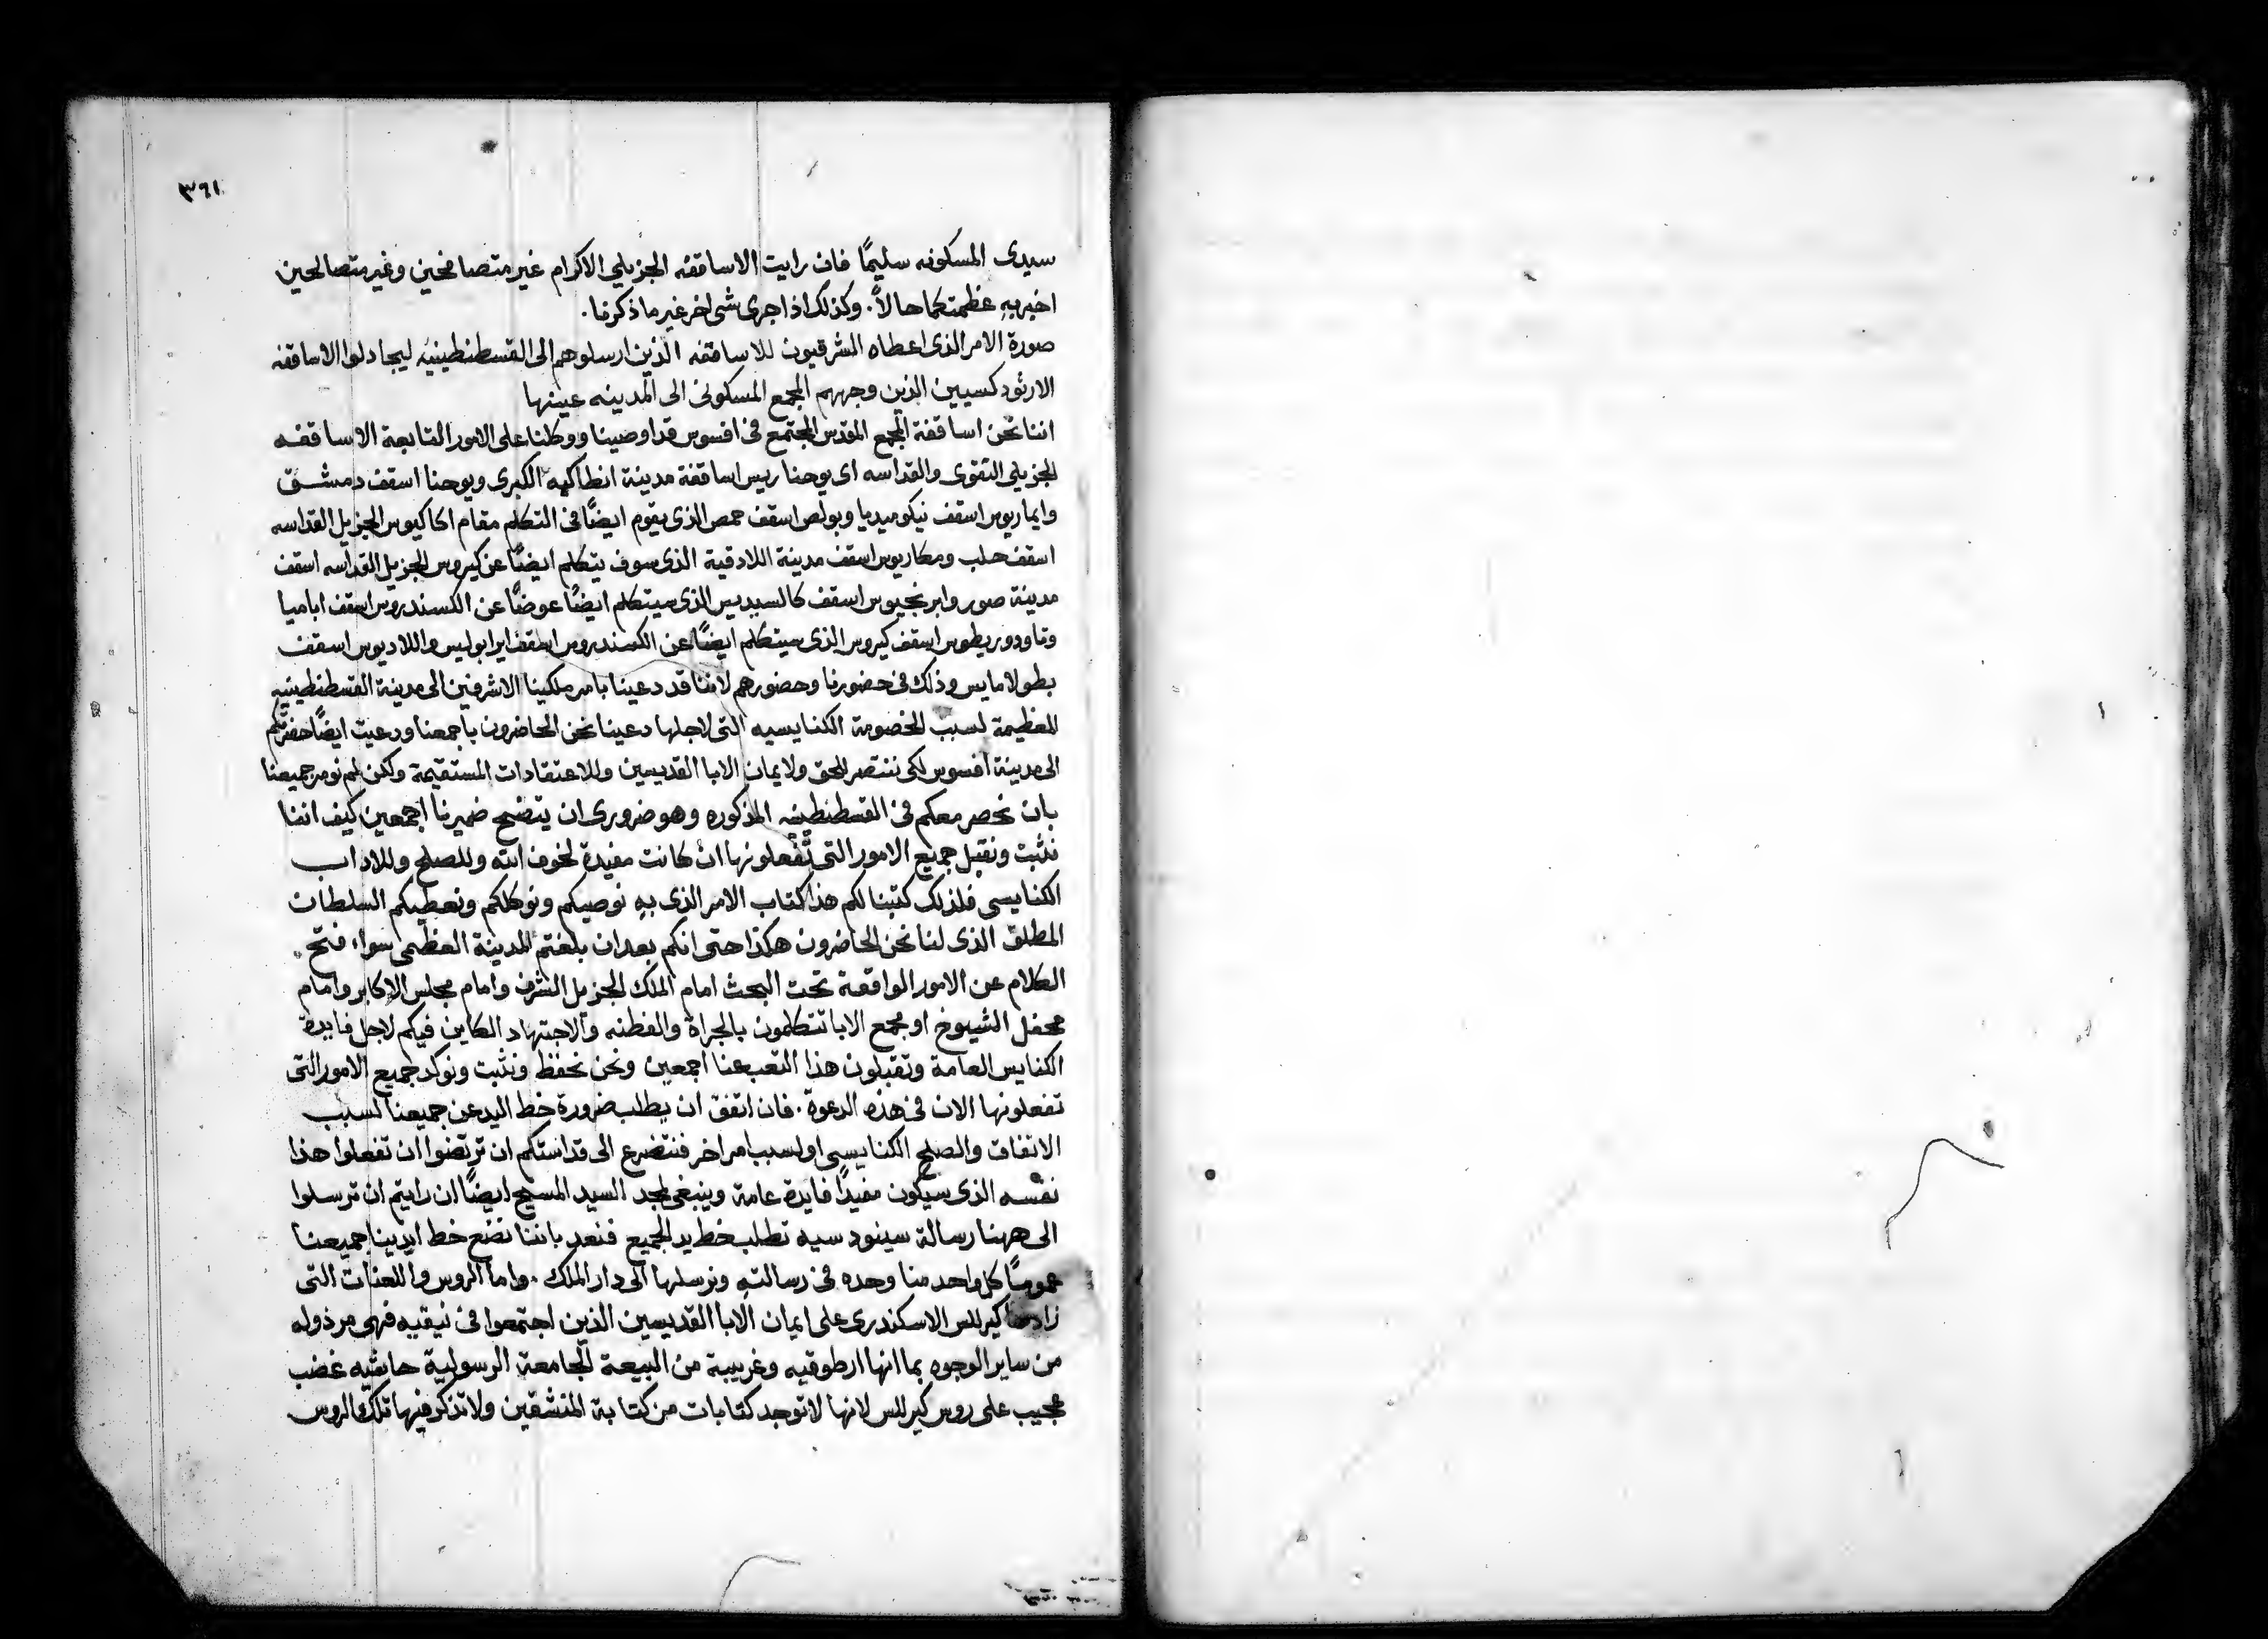 ٣٦١
سيدى المسكونه سليمًا فان رايت الاساقفه الجزيلي الاكرام غير متصافحين وغير متصالحين
اخبر به عظمتكما حالاً. وكذلك اذا جرى شى اخر غير ما ذكرنا.
صورة الامر الذى اعطاه الشرقيون للاساقفه الذين ارسلوهم الى القسطنطينيه ليجادلوا الاساقفه
الارثودكسيين الذين وجههم المجمع المسكونى الى المدينه عينها
اننا نحن اساقفة المجمع المقدس المجتمع فى افسوس قد اوصينا ووكلنا على الامور التابعة الاساقفه
الجزيلي التقوى والقداسه اى يوحنا ريس اساقفة مدينة انطاكيه الكبرى ويوحنا اسقف دمشق
وايماريوس اسقف نيكوميديا وبولص اسقف حمص الذى يقوم ايضًا فى التكلم مقام اكاكيوس الجزيل القداسه
اسقف حلب ومكاريوس اسقف مدينة اللادقية الذى سوف يتكلم ايضًا عن كيروس الجزيل القداسه اسقف
مدينة صور وابرنجيوس اسقف كالسيديس الذى سيتكلم ايضًا عوضًا عن الكسندروس اسقف اباميا
وتاودوريطوس اسقف كيروس الذى سيتكلم ايضًا عن الكسندروس اسقف ايرابوليس واللاديوس اسقف
بطولامايس وذلك فى حضورنا وحضورهم لاننا قد دعينا بامر ملكينا الاشرفين الى مدينة القسطنطينيه
العظيمة لسبب الخصومة الكنايسيه التى لاجلها دعينا نحن الحاضرون باجمعنا ودعيت ايضًا حضرتكم
الى مدينة افسوس لكى ننتصر للحق ولايمان الابا القديسين وللاعتقادات المستقيمة ولكن لم نومر جميعنا
بان نحضر معكم فى القسطنطينيه المذكوره وهو ضرورى ان يتضح ضميرنا اجمعين كيف اننا
نثبت ونقبل جميع الامور التى تفعلونها ان كانت مفيدة لخوف الله وللصلح وللاداب
الكنايسى فلذلك كتبنا لكم هذا كتاب الامر الذى به نوصيكم ونوكلكم ونعطيكم السلطان
المطلق الذى لنا نحن الحاضرون هكذا حتى انكم بعد ان بلغتم المدينة العظمى سواء فتح
الكلام عن الامور الواقعة تحت البحث امام الملك الجزيل الشرف وامام مجلس الاكابر وامام
محفل الشيوخ او مجمع الابا تتكلمون بالجراة والفطنه والاجتهاد الكاين فيكم لاجل فايدة
الكنايس العامة وتقبلون هذا التعب عنا اجمعين ونحن نحفظ ونثبت ونوكد جميع الامور التى
تفعلونها الان فى هذه الدعوة. فان اتفق ان يطلب ضرورة خط اليد عن جميعنا لسبب
الاتفاق والصلح الكنايسى او لسبب امر اخر فنتضرع الى قداستكم ان ترتضوا ان تفعلوا هذا
نفسه الذى سيكون مفيدًا فايدة عامة وينبغى لمجد السيد المسيح ايضًا ان رايتم ان ترسلوا
الى ههنا رسالة سينودسيه تطلب خط يد الجميع فنعد باننا نضع خط ايدينا جميعنا
عمومًا كل واحد منا وحده فى رسالته ونرسلها الى دار الملك. واما الروس واللعنات التى
زادها كيرللس الاسكندرى على ايمان الابا القديسين الذين اجتمعوا فى نيقيه فهى مرذوله
من ساير الوجوه بما انها ارطوقيه وغريبة من البيعة الجامعة الرسولية حاشيه غضب
عجيب على روس كيرللس لانها لا توجد كتابات من كتابة المنشقين ولا تذكر فيها تلك الروس